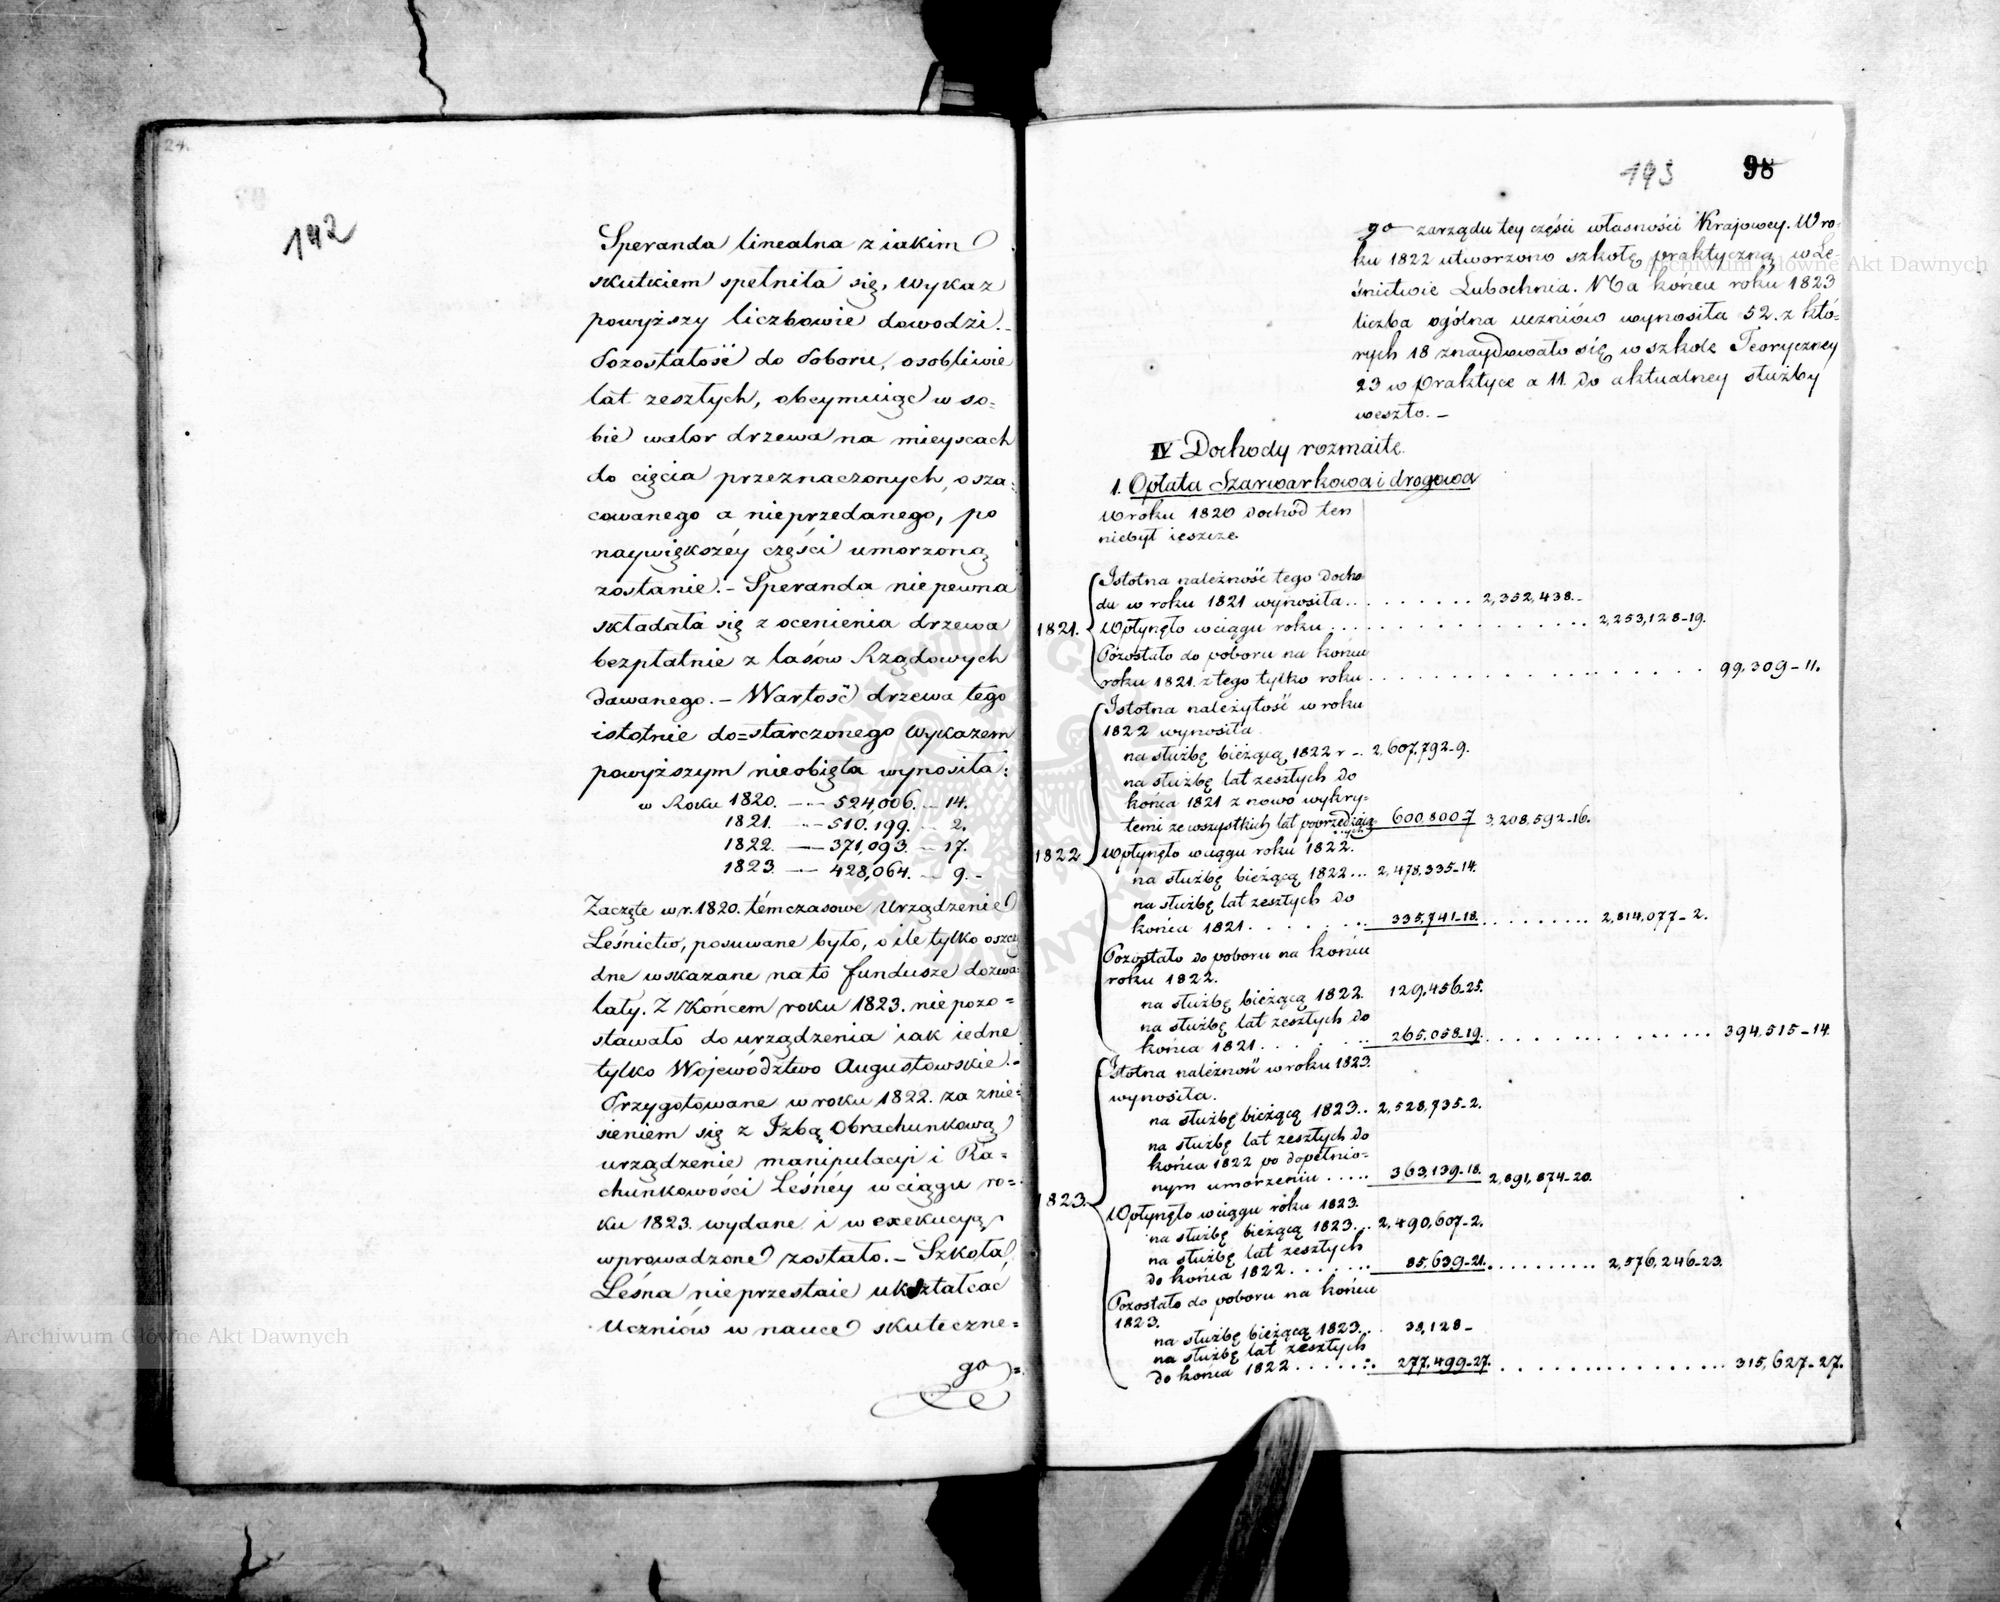 24.
142
Speranda linealna z iakim
skutkiem spełniła się, wykaz
powyższy liczbowie dowodzi.-
Pozostałość do Poboru, osobliwie
lat zeszłych, obeymuiąc w so=
bie walor drzewa na mieyscach
do cięcia przeznaczonych, osza=
cowanego a nieprzedanego, po
naywiększéy części umorzoną
zostanie.- Speranda niepewna
składała się z ocenienia drzewa
bezpłatnie z lasów Rządowych
dawanego.- Wartość drzewa tego
istotnie do=starczonego Wykazem
powyższym nieobięta wynosiła:
w Roku 1820. — 524,006. — 14.
1821. — 510,199. — 2.
1822. — 371,093. — 17.
1823. — 428,064. — 9.-
Zaczęte w r. 1820. témczasowe Urządzenie
Leśnictw, posuwane było, o ile tylko oszczę
dne wskazane na to fundusze dozwa=
lały. Z Końcem roku 1823. niepozo=
stawało do urządzenia iak iedne
tylko Województwo Augustowskie.-
Przygotowane w roku 1822. za znie=
sieniem się z Izbą Obrachunkową
urządzenie manipulacyi i Ra=
chunkowości Leśnéy w ciągu ro=
ku 1823. wydane i w exekucyą
wprowadzone zostało.- Szkoła
Leśna nieprzestaie ukształcać
Uczniów w nauce skuteczne=
go=
193 98
go zarządu tey części własności Krajowey. W ro=
ku 1822 utworzono szkołę praktyczną w Le=
śnictwie Lubochnia. Na końcu roku 1823
liczba ogólna uczniów wynosiła 52. z któ=
rych 18 znaydowało się w szkole Teoryczney
23 w praktyce a 11. do aktualney służby
weszło.-
IV Dochody rozmaite.
1. Opłata Szarwarkowa i drogowa
W roku 1820 dochód ten
niebył ieszcze
Istotna należność tego docho=
du w roku 1821 wynosiła . . . . . . . . . 2,352,438.-
1821. Wpłynęło w ciągu roku . . . . . . . . . 2,253,128-19.
Pozostało do poboru na końcu
roku 1821. z tego tylko roku . . . . . . . . . 99,309-11.
Istotna należytość w roku
1822 wynosiła
na służbę bieżącą 1822 r - . 2,607,792-9.
na służbę lat zeszłych do
końca 1821 z nowo wykry=
temi ze wszystkich lat poprzedzają=
cych 600,800-7 3,208,592-16.
1822 Wpłynęło w ciągu roku 1822.
na służbę bieżącą 1822 . . . 2,478,335-14.
na służbę lat zeszłych do
końca 1821. . . . . . . . 335,741-18. . . . . . . . . . 2,814,077-2.
Pozostało do poboru na końcu
roku 1822.
na służbę bieżącą 1822. 129,456-25.
na służbę lat zeszłych do
końca 1821. . . . . . . . 265,058-19. . . . . . . . . . 394,515-14.
Istotna należność w roku 1823.
wynosiła.
na służbę bieżącą 1823. . 2,528,735-2.
na służbę lat zeszłych do
końca 1822 po dopełnio=
nym umorzeniu . . . . . 363,139-18. 2,891,874-20.
1823. Wpłynęło w ciągu roku 1823.
na służbę bieżącą 1823. . . 2,490,607-2.
na służbę lat zeszłych
do końca 1822. . . . . . . 85,639-21. . . . . . . . . . 2,576,246-23.
Pozostało do poboru na końcu
1823.
na służbę bieżącą 1823. . . 38,128-
na służbę lat zeszłych
do końca 1822 . . . . . . . 277,499-27. . . . . . . . . . 315,627-27.
Archiwum Główne Akt Dawnych
Archiwum Główne Akt Dawnych